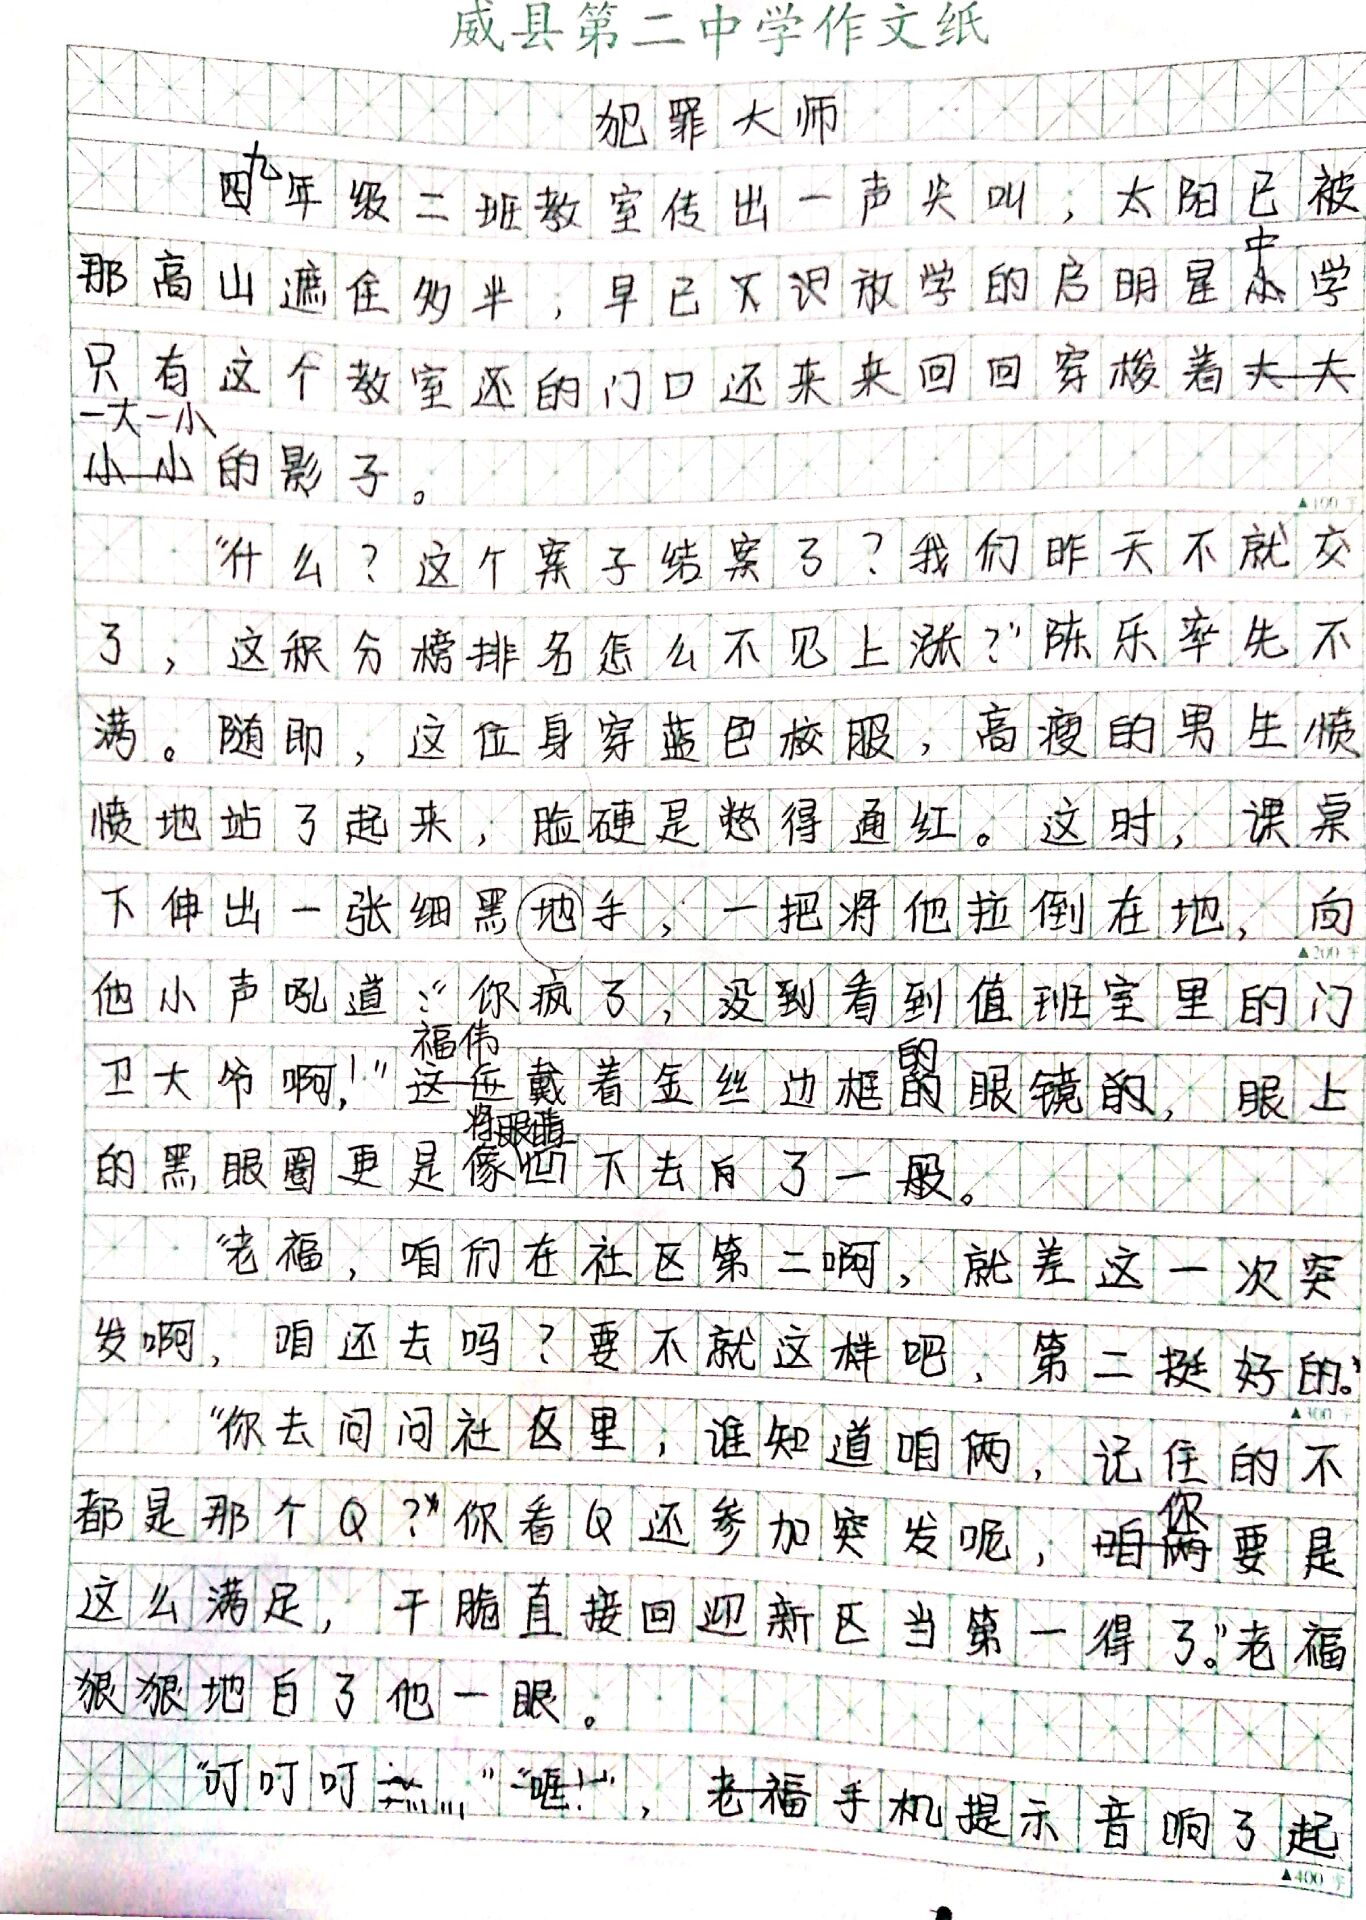 威县第二中学作文纸
犯罪大师
九年级二班教室传出一声尖叫，太阳已被
那高山遮住多半，早已不识放学的启明星中学
只有这个教室还的门口还来来回回穿梭着
一大一小的影子。
▲100字
“什么？这个案子结案了？我们昨天不就交
了，这积分榜排名怎么不见上涨？”陈乐率先不
满。随即，这位身穿蓝色校服，高瘦的男生愤
愤地站了起来，脸硬是憋得通红。这时，课桌
下伸出一张细黑地手，一把将他拉倒在地，向
▲200字
他小声吼道：“你疯了，没到看到值班室里的门
卫大爷啊！”福伟戴着金丝边框的眼镜，眼上
的黑眼圈更是将眼睛凹下去了一般。
“老福，咱们在社区第二啊，就差这一次突
发啊，咱还去吗？要不就这样吧，第二挺好的。”
▲300字
“你去问问社区里，谁知道咱俩，记住的不
都是那个Q？”你看Q还参加突发呢，你要是
这么满足，干脆直接回迎新区当第一得了。”老福
狠狠地白了他一眼。
“叮叮叮……”，老福手机提示音响了起
▲400字